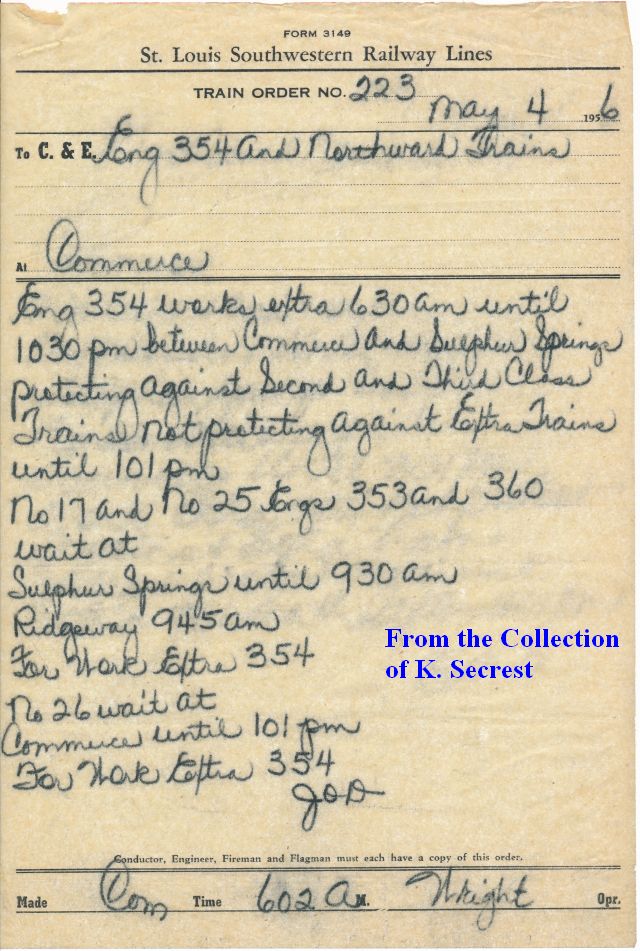 FORM 3149
St. Louis Southwestern Railway Lines
TRAIN ORDER NO. 223
May 4 1956
To C. & E. Eng 354 And Northward Trains
At Commerce
Eng 354 works extra 630 am until
1030 pm between Commerce And Sulphur Springs
protecting against Second And Third Class
Trains Not protecting against Extra Trains
until 101 pm
No 17 and No 25 Engs 353 and 360
wait at
Sulphur Springs until 930 am
Ridgeway 945 am
For Work Extra 354
From the Collection
of K. Secrest
No 26 wait at
Commerce until 101 pm
For Work Extra 354
JOD
Conductor, Engineer, Fireman and Flagman must each have a copy of this order.
Made Com Time 602 A M. Wright Opr.